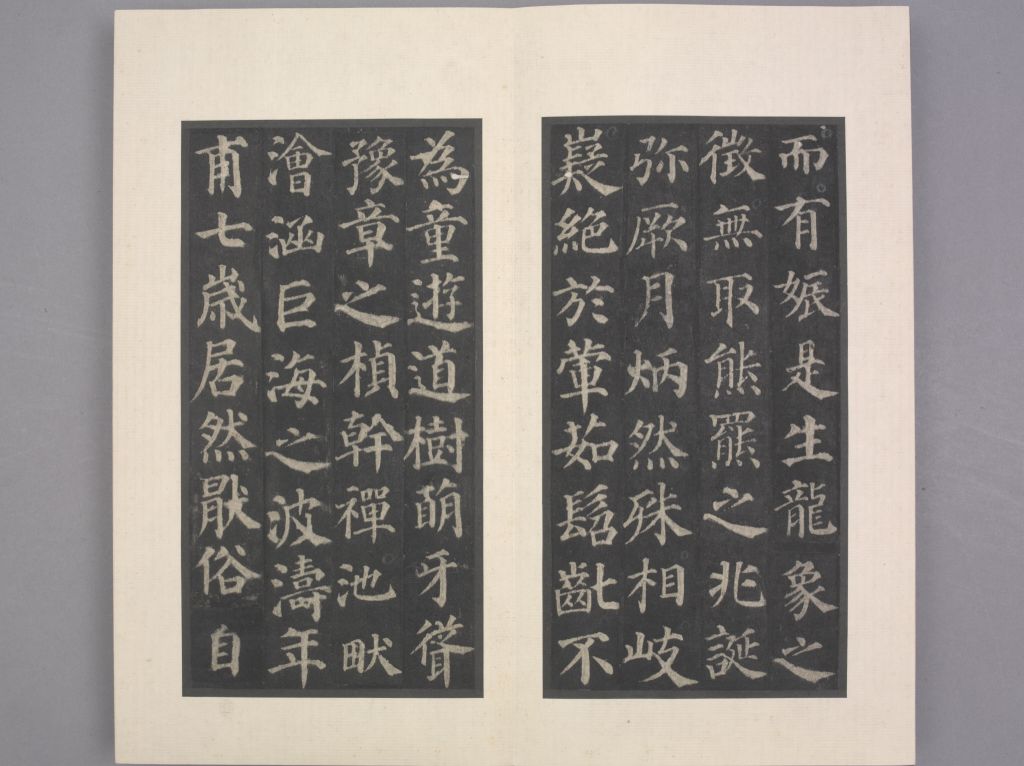 而有娠是生龍象之
徵無取熊羆之兆誕
弥厥月炳然殊相岐
嶷絶於葷茹髫齔不
為童遊道樹萌牙聳
豫章之楨幹禪池畎
澮涵巨海之波濤年
甫七歲居然猒俗自